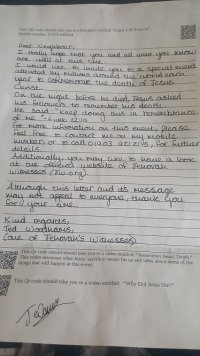 This QR code should take you to a brochure entitled: "Enjoy Life Forever"
Dear Neighbour,
I really hope that you and all who you know
are well at this time.
I would like to invite you to a special event
attended by millions around the world each
year to commemorate the death of Jesus
Christ.
On the night before he died, Jesus asked
his followers to remember his death.
He said: "Keep doing this in remembrance
of me."- Luke 22:19
For more information on this event, please
feel free to contact me on my mobile
number, or to call for further
details.
Additionally you may like to have a look
at the official website of Jehovah's
Witnesses (jw.org).
Although this letter and its message
may not appeal to everyone, thank you
for your time.
Kind regards,
Ted Woodhams,
(one of Jehovah's Witnesses).
This QR code should take you to a video entitled: "Remember Jesus' Death."
This video discusses what Jesus' sacrifice means for us and talks about some of the
things that will happen at this event.
This QR code should take you to a video entitled: "Why Did Jesus Die?"